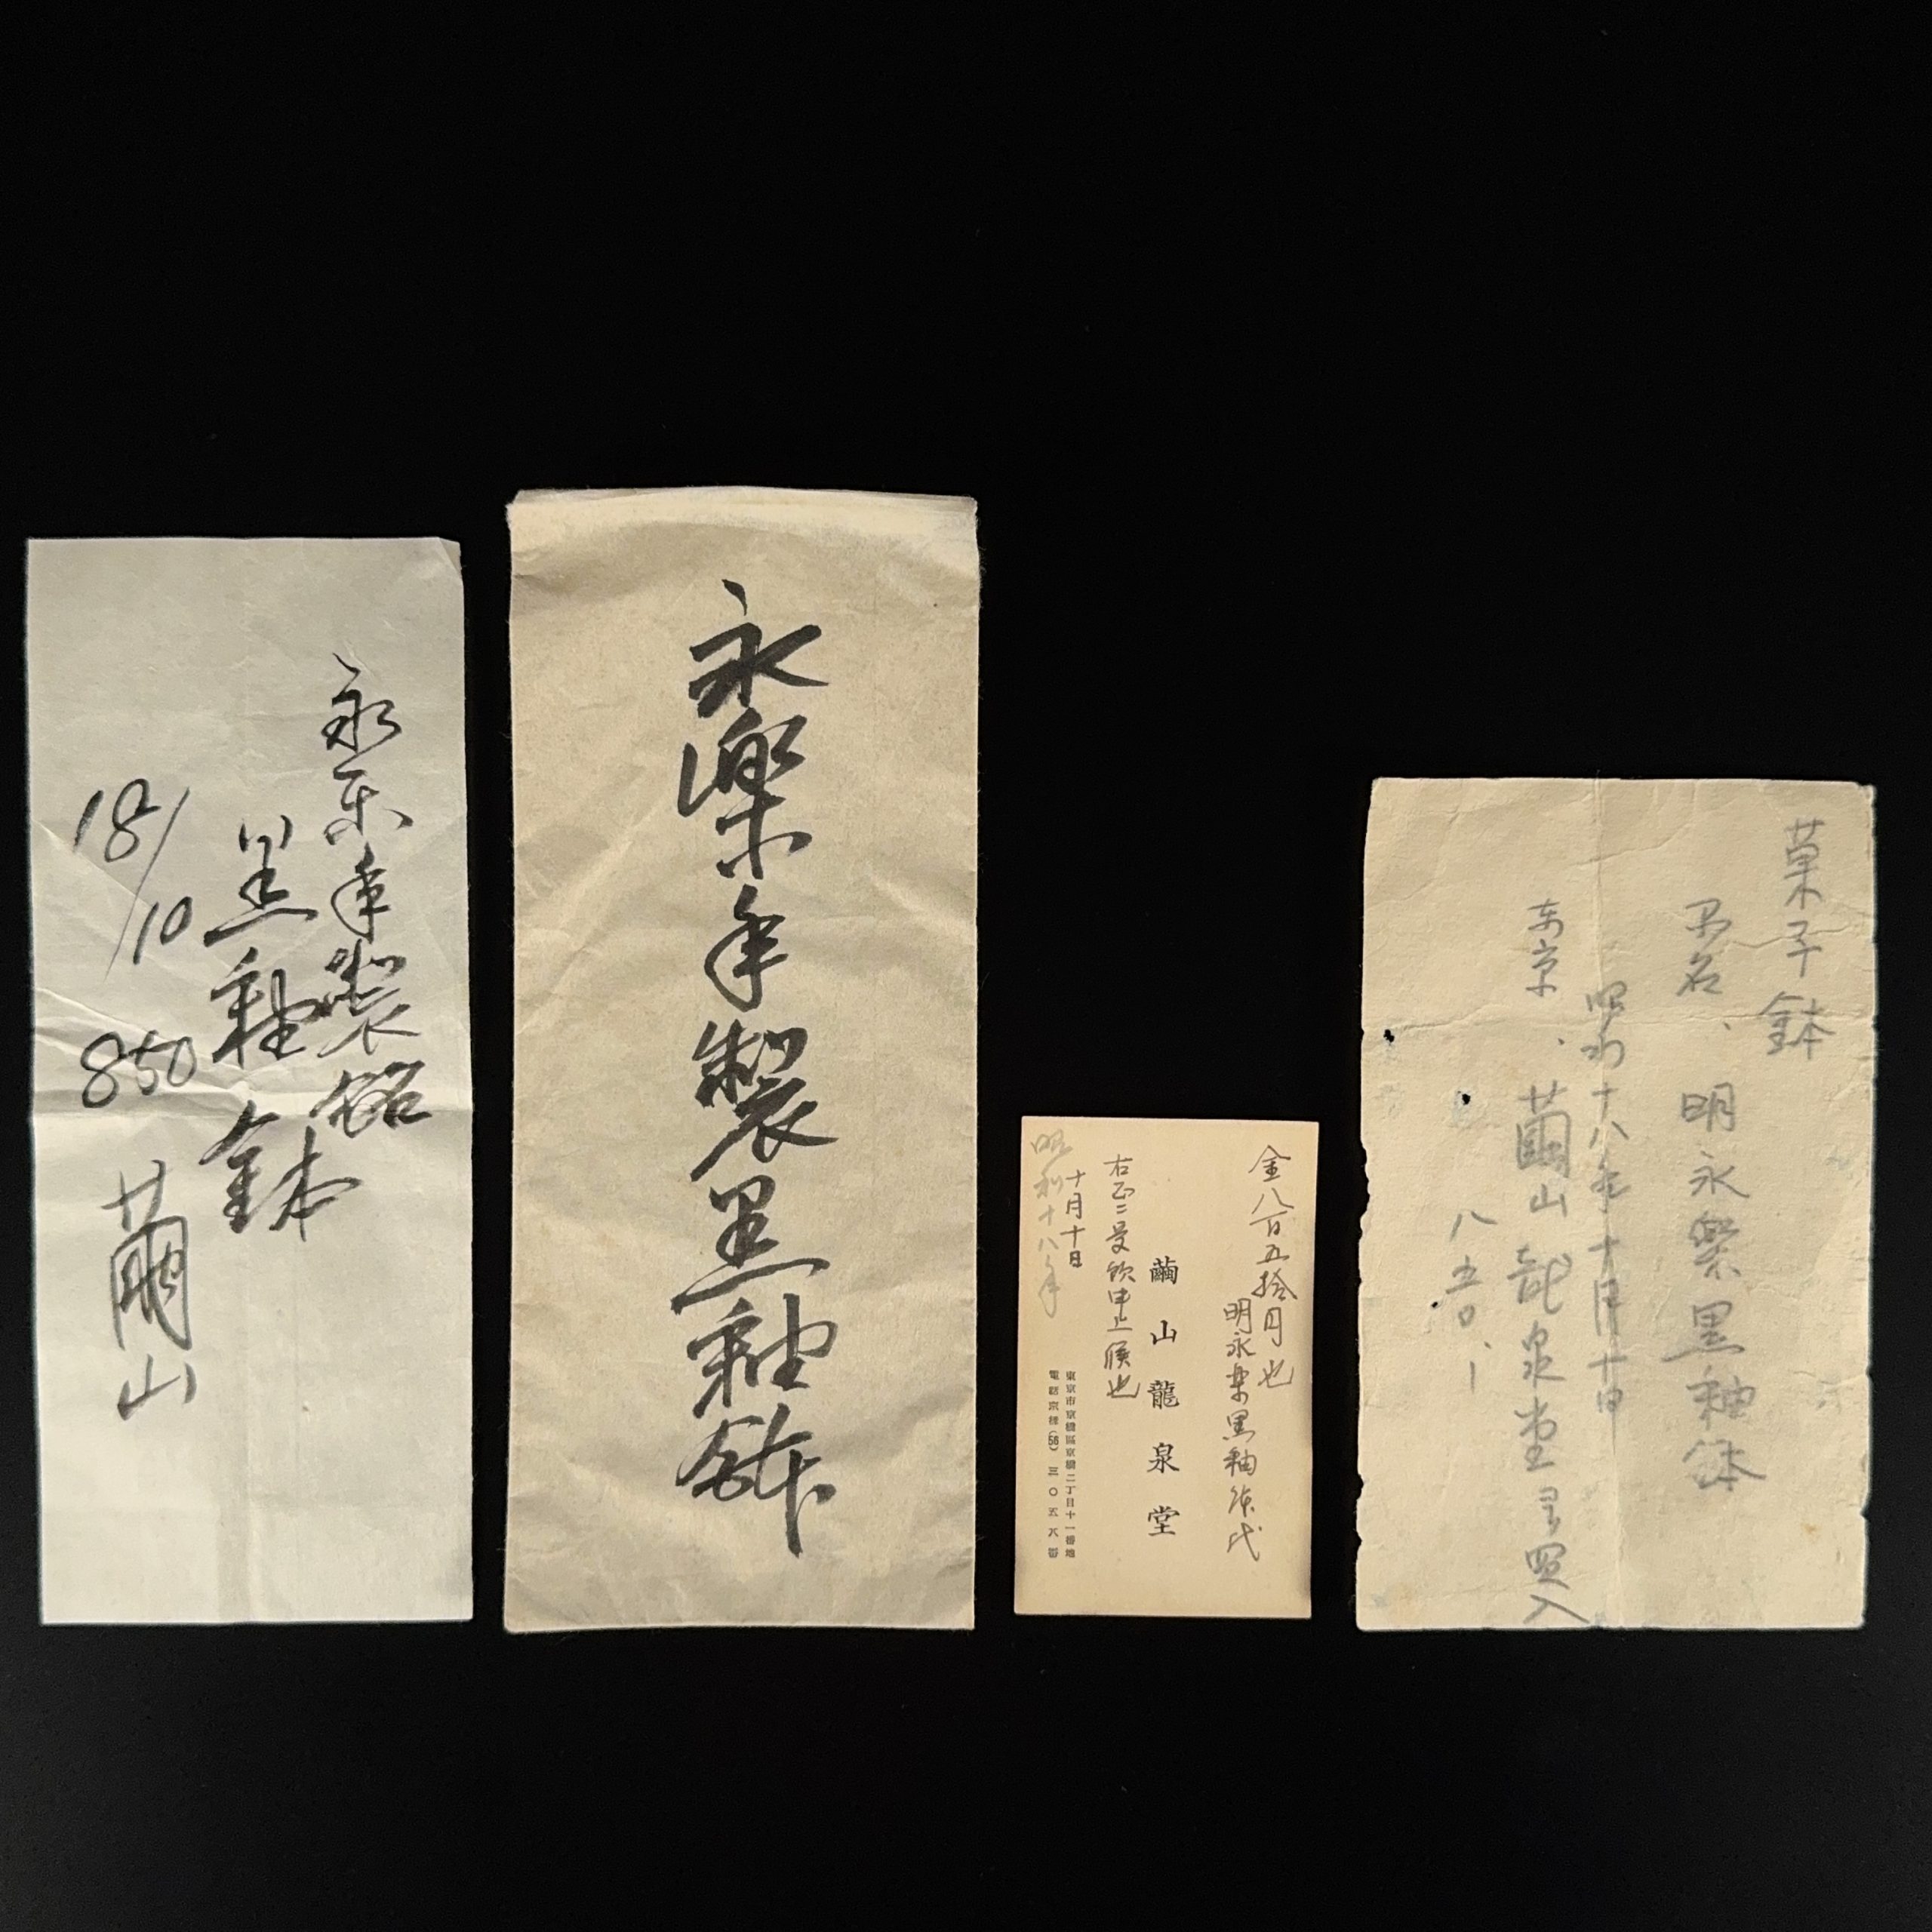 永樂年製銘
黒釉鉢
18/10
850
繭山
永樂年製黒釉鉢
金八百五拾円也
明永楽黒釉鉢代
繭山龍泉堂
右正ニ受領申上候也
十月十日
昭和十八年
東京市京橋區京橋二丁目十一番地
電話京橋(56)三〇五八番
菓子鉢
名、明永樂黒釉鉢
昭和十八年十月十日
东京、繭山龍泉堂ヨリ買入
八五〇、